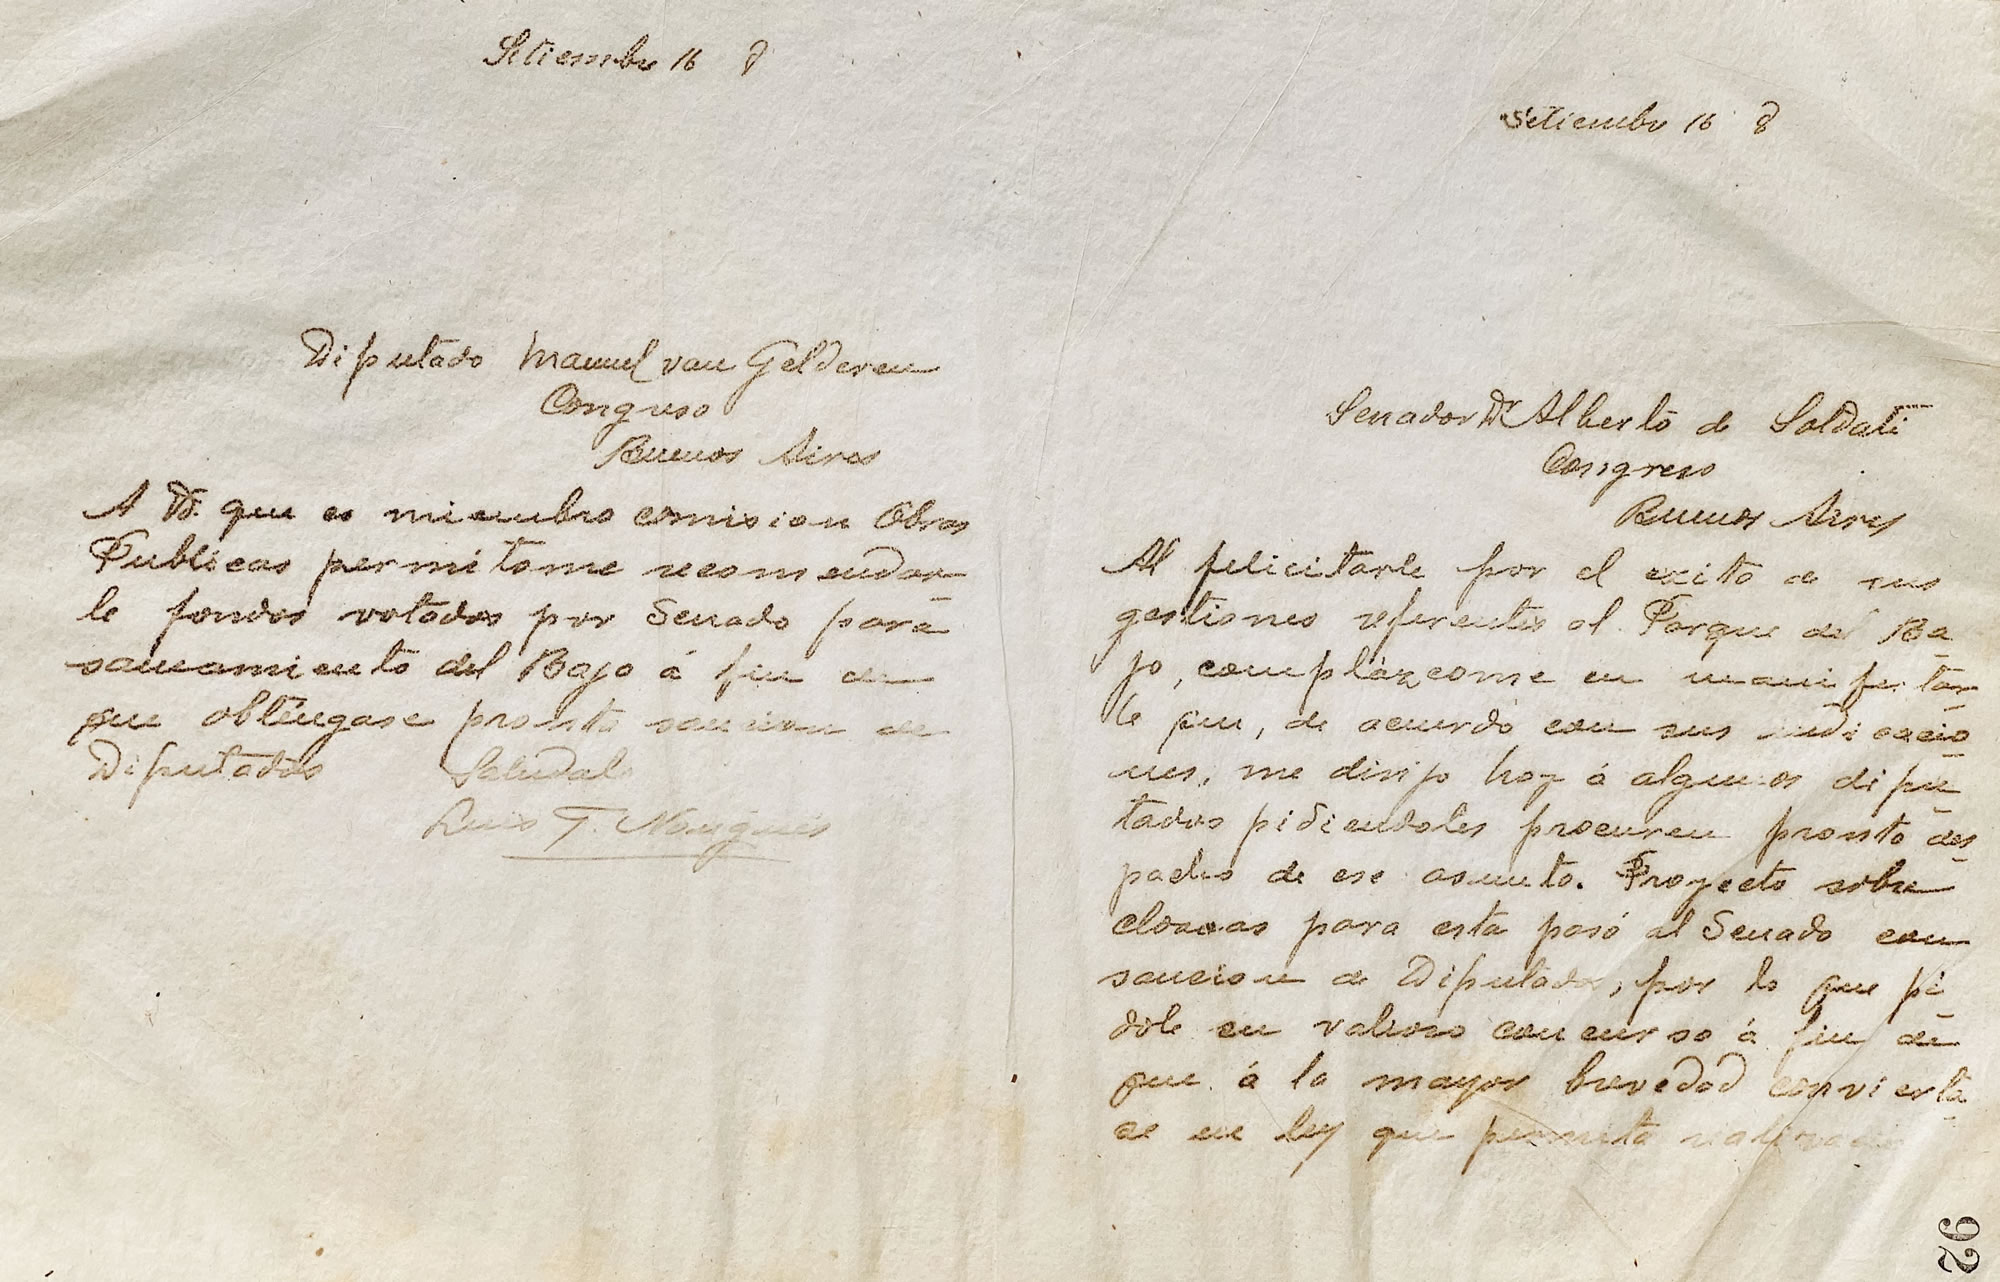 Setiembre 16 8
Diputado Manuel van Gelderen
Congreso
Buenos Aires
A Vd. que es miembro comision Obras
Publicas permítome recomendar-
le fondos votados por Senado para
saneamiento del Bajo á fin de
que obténgase pronta sancion de
Diputados Salúdalo
Luis F. Nougués
Setiembre 16 8
Senador Dr Alberto de Soldati
Congreso
Buenos Aires
Al felicitarle por el exito de sus
gestiones referentes al Parque del Ba-
jo, complázcome en manifestar-
le que, de acuerdo con sus indicacio-
nes, me dirijo hoy á algunos dipu-
tados pidiendoles procuren pronto des-
pacho de ese asunto. Proyecto sobre
cloacas para esta pasó al Senado con
sancion de Diputados, por lo que pí-
dole su valioso concurso á fin de
que á la mayor brevedad convierta-
se en ley que permita realizacion
92